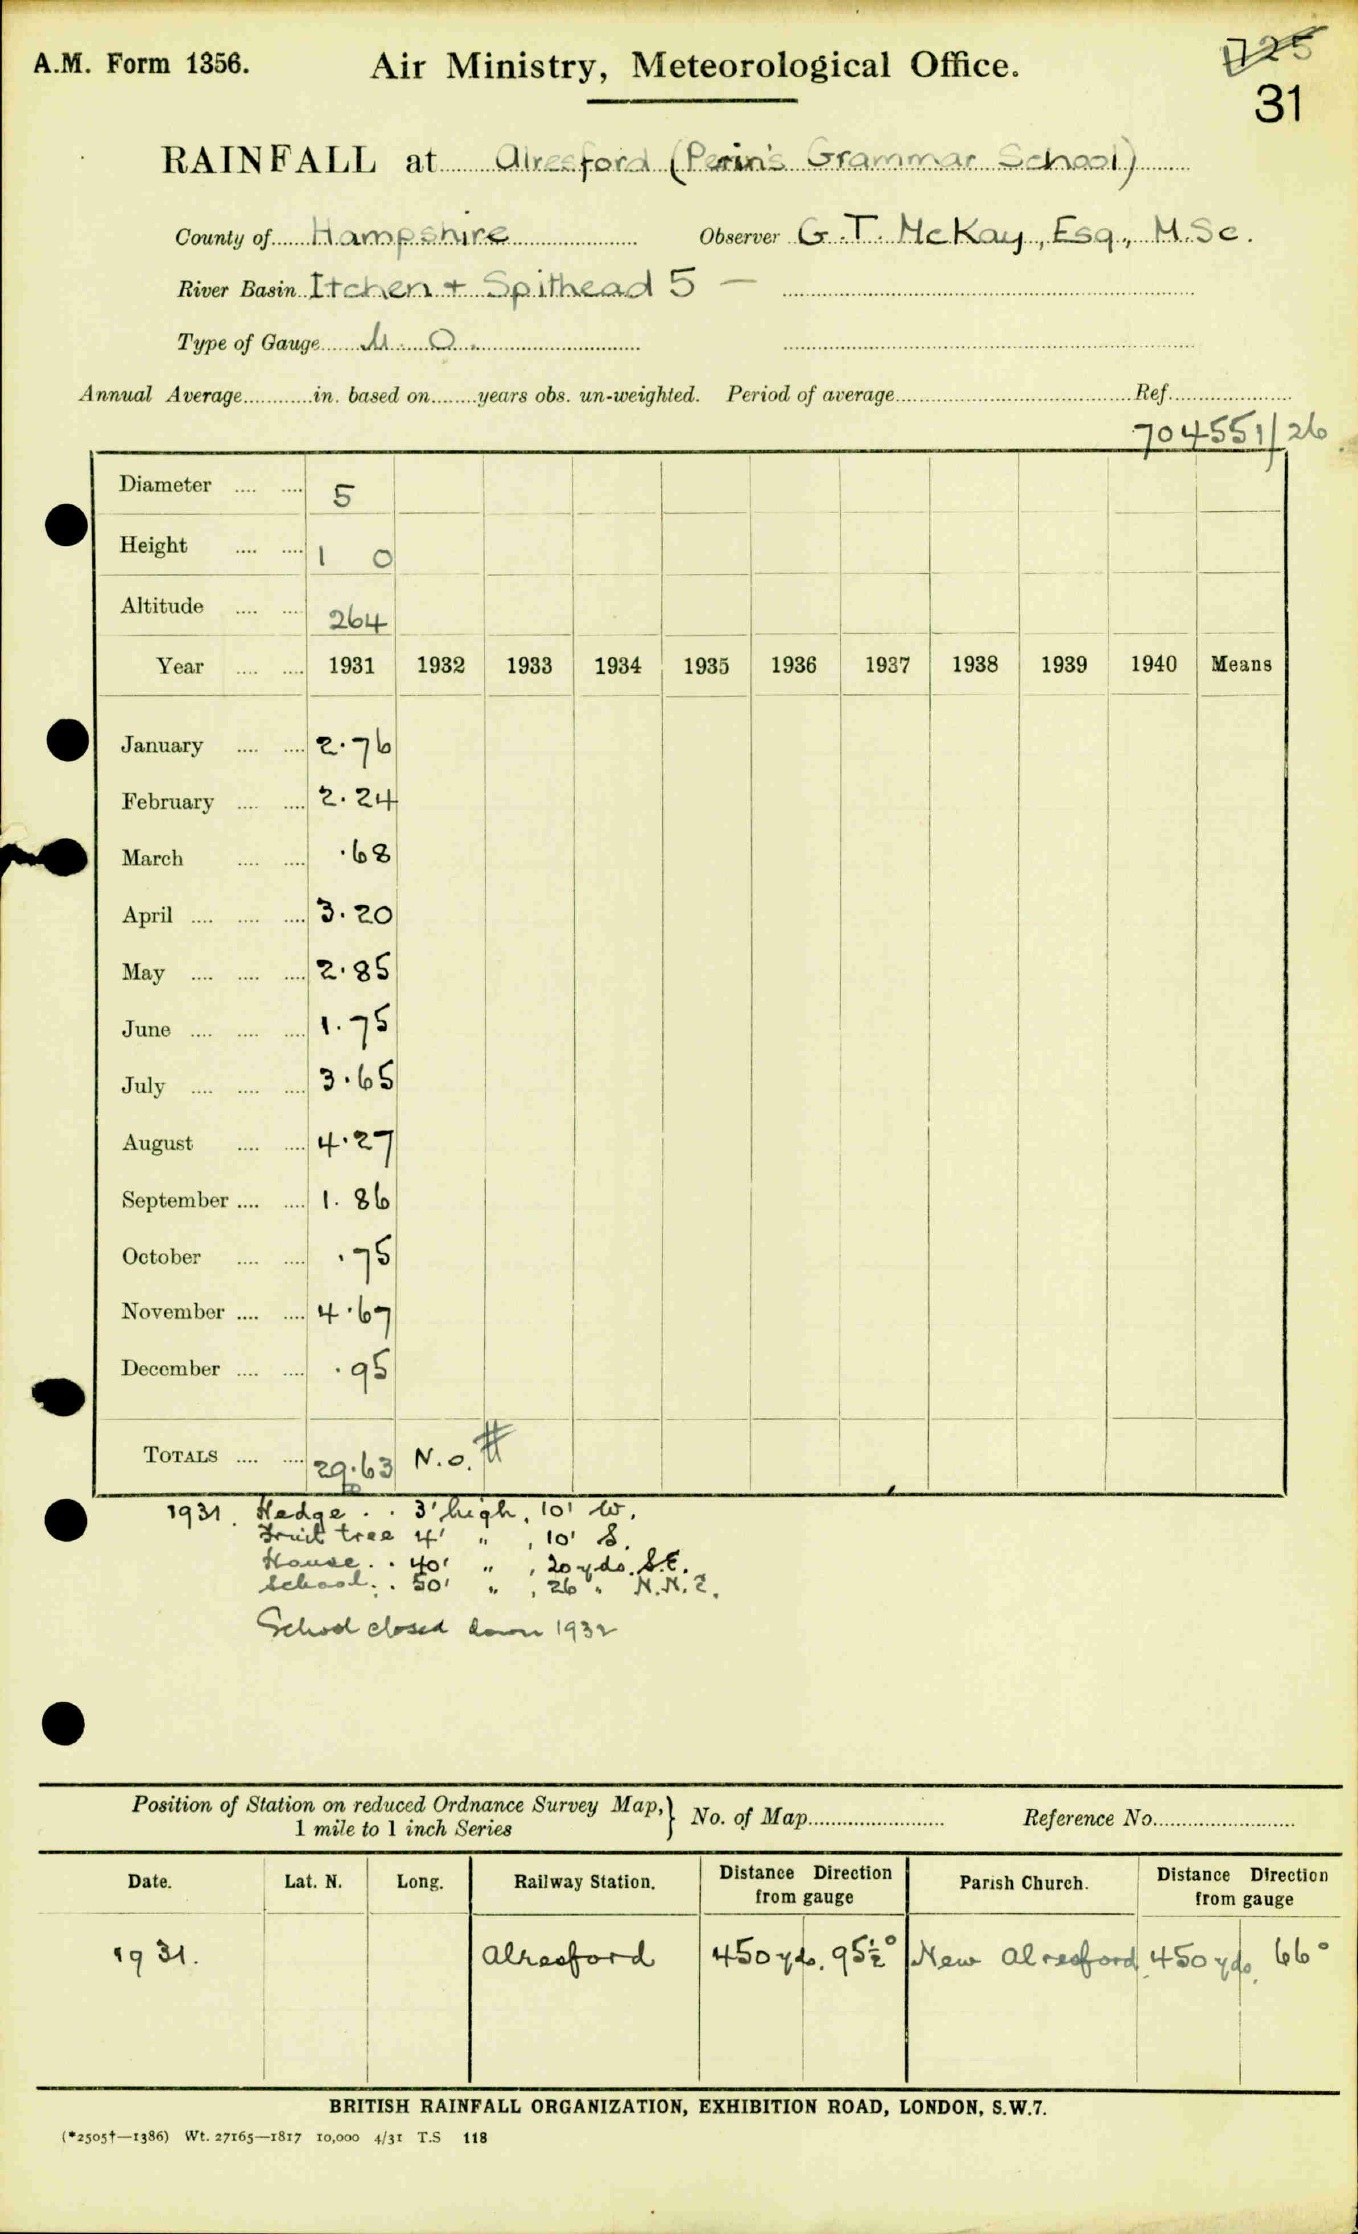 A.M. Form 1356.
Air Ministry, Meteorological Office.
1725
31
RAINFALL at Alresford (Perin's Grammar School)
County of Hampshire Observer G.T. McKay, Esq., M.Sc.
River Basin Itchen + Spithead 5 —
Type of Gauge M.O.
Annual Average............in. based on........years obs. un-weighted. Period of average..............................Ref...............
704551/26
Diameter .... .... 5
Height .... .... 1 0
Altitude .... .... 264
Year .... .... 1931 1932 1933 1934 1935 1936 1937 1938 1939 1940 Means
January .... .... 2.76
February .... .... 2.24
March .... .... .68
April .... .... .... 3.20
May .... .... .... 2.85
June .... .... .... 1.75
July .... .... .... 3.65
August .... .... 4.27
September .... .... 1.86
October .... .... .75
November .... .... 4.67
December .... .... .95
TOTALS .... .... 29.63 N.o. #
1931. Hedge . . 3' high, 10' W.
Fruit tree 4' " , 10' S.
House . . 40' " , 20 yds. S.E.
School . . 50' " , 26 " N.N.E.
School closed down 1932
Position of Station on reduced Ordnance Survey Map, } No. of Map.................... Reference No....................
1 mile to 1 inch Series
Date. Lat. N. Long. Railway Station. Distance Direction from gauge Parish Church. Distance Direction from gauge
1931. Alresford 450 yds. 95½° New Alresford 450 yds. 66°
BRITISH RAINFALL ORGANIZATION, EXHIBITION ROAD, LONDON, S.W.7.
(*2505†—1386) Wt. 27165—1817 10,000 4/31 T.S 118